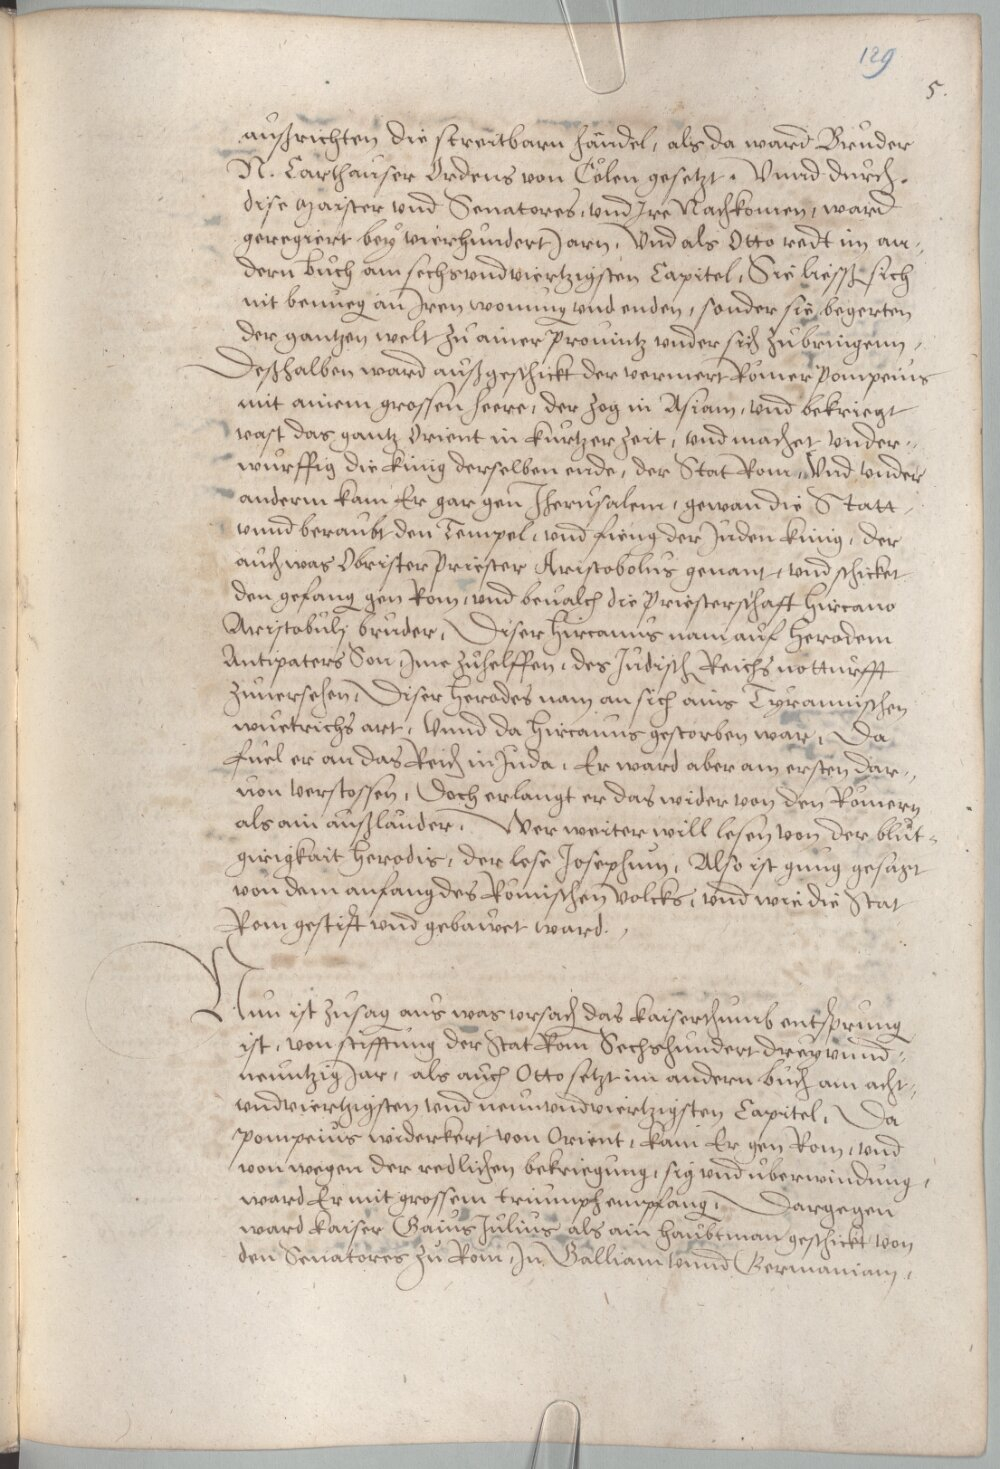 129
5.
außrichten die streitbarn händel, als da ward Bruder
N. Carthauser Ordens von Cölen gesetzt. Vnnd durch
dise maister vnd Senatores, vnd Ire Nachkomen, ward
geregiert bey vierhundert Jarn, Vnd als Otto redt im an-
dern buch am sechsvndviertzigsten Capitel, Sie liessß sich
nit benueg an Iren wonung vnd enden, sonder sie begerten
der gantzen welt zu ainer Prouintz vnder sich zubringenn,
Deßhalben ward außgeschickt der vermert Römer Pompeius
mit ainem grossen heere, der zog in Asiam, vnd bekriegt
vast das gantz Orient in kurtzer zeit, vnd machet vnder-
würffig die künig derselben ende, der Stat Rom, Vnd vnder
anderm kam Er gar gen Jherusalem, gewan die Statt
vnnd beraubt den Tempel, vnd fieng der Juden künig, der
auch was Obrister Priester Aristobolus genant, vnd schicket
den gefang gen Rom, vnd beualch die Priesterschafft Hircano
Aristobuli bruder, Diser Hircanus nam auf Herodem
Antipaters Son, Ime zuhelffen, des Jüdisch Reichs notturfft
zuuersehen, Diser Herodes nam an sich ains Tyrannischen
wuetrichs art, Vnnd da Hircanus gestorben war, Da
fuel er an das Reich in Juda, Er ward aber am ersten dar-
uon verstossen, Doch erlangt er das wider von den Römern
als ain außlander. Wer weiter will lesen von der blut-
girigkait Herodis, der lese Josephum, Also ist gnug gesagt
von dem anfang des Römischen Volcks, vnd wie die Stat
Rom gestifft vnd gebawet ward.
Nun ist zusag aus was vrsach das kaiserthumb entsprung
ist, von stifftung der Stat Rom Sechshundert dreyvnnd-
neuntzig Jar, als auch Otto setzt im andern buch am acht-
vndviertzigsten vnd neunvndviertzigsten Capitel, Da
Pompeius widerkert von Orient, kam Er gen Rom, vnd
von wegen der redlichen bekriegung, sig vnd überwindung,
ward Er mit grossem triumph empfang, Dargegen
ward kaiser Gaius Julius als ain haubtman geschickt von
den Senatores zu Rom, In Galliam vnnd Germaniam,